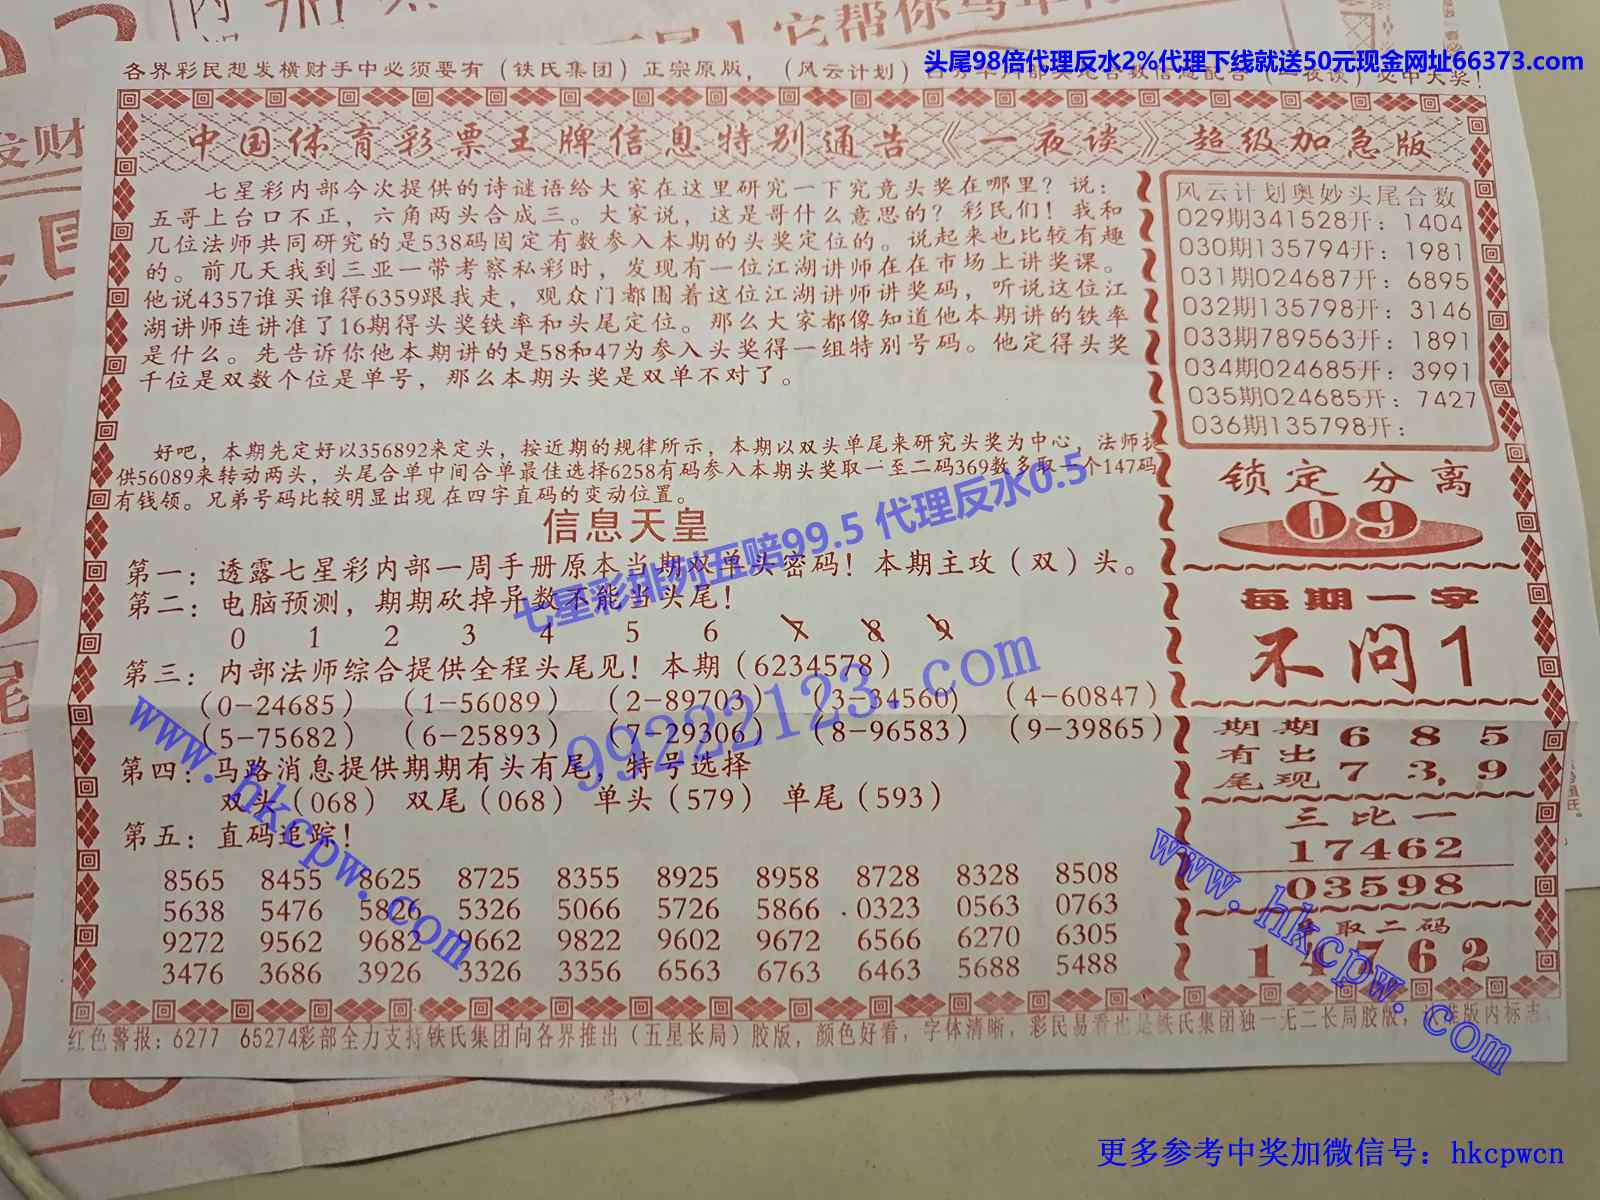 头尾98倍代理反水2%代理下线就送50元现金网址66373.com
它帮你
各界彩民想发横财手中必须要有（铁氏集团）正宗原版，（风云计划）
中国体育彩票王牌信息特别通告《一夜谈》超级加急版
七星彩内部今次提供的诗谜语给大家在这里研究一下究竟头奖在哪里？说：
五哥上台口不正，六角两头合成三。大家说，这是哥什么意思的？彩民们！我和
几位法师共同研究的是538码固定有数参入本期的头奖定位的。说起来也比较有趣
的。前几天我到三亚一带考察私彩时，发现有一位江湖讲师在在市场上讲奖课。
他说4357谁买谁得6359跟我走，观众门都围着这位江湖讲师讲奖码，听说这位江
湖讲师连讲准了16期得头奖铁率和头尾定位。那么大家都像知道他本期讲的铁率
是什么。先告诉你他本期讲的是58和47为参入头奖得一组特别号码。他定得头奖
千位是双数个位是单号，那么本期头奖是双单不对了。
好吧，本期先定好以356892来定头，按近期的规律所示，本期以双头单尾来研究头奖为中心，法师提
供56089来转动两头，头尾合单中间合单最佳选择6258有码参入本期头奖取一至二码369数多取一个147码
有钱领。兄弟号码比较明显出现在四字直码的变动位置。
信息天皇
第一：透露七星彩内部一周手册原本当期双单头密码！本期主攻（双）头。
第二：电脑预测，期期砍掉异数不能当头尾！
0 1 2 3 4 5 6 7 8 9
第三：内部法师综合提供全程头尾见！本期（6234578）
（0-24685）（1-56089）（2-89703）（3-34560）（4-60847）
（5-75682）（6-25893）（7-29306）（8-96583）（9-39865）
第四：马路消息提供期期有头有尾，特号选择
双头（068） 双尾（068） 单头（579） 单尾（593）
第五：直码追踪！
8565 8455 8625 8725 8355 8925 8958 8728 8328 8508
5638 5476 5826 5326 5066 5726 5866 0323 0563 0763
9272 9562 9682 9662 9822 9602 9672 6566 6270 6305
3476 3686 3926 3326 3356 6563 6763 6463 5688 5488
风云计划奥妙头尾合数
029期341528开：1404
030期135794开：1981
031期024687开：6895
032期135798开：3146
033期789563开：1891
034期024685开：3991
035期024685开：7427
036期135798开：
锁定分离
09
每期一字
不问1
期期有出尾现
6 8 5
7 3, 9
三比一
17462
03598
取二码
14762
红色警报：6277 65274彩部全力支持铁氏集团向各界推出（五星长局）胶版，颜色好看，字体清晰，彩民易看也是铁氏集团独一无二长局胶版，认准版内标志。
七星彩排列五赔99.5 代理反水0.5
99222123.com
www.hkcpw.com
www.hkcpw.com
更多参考中奖加微信号：hkcpwcn